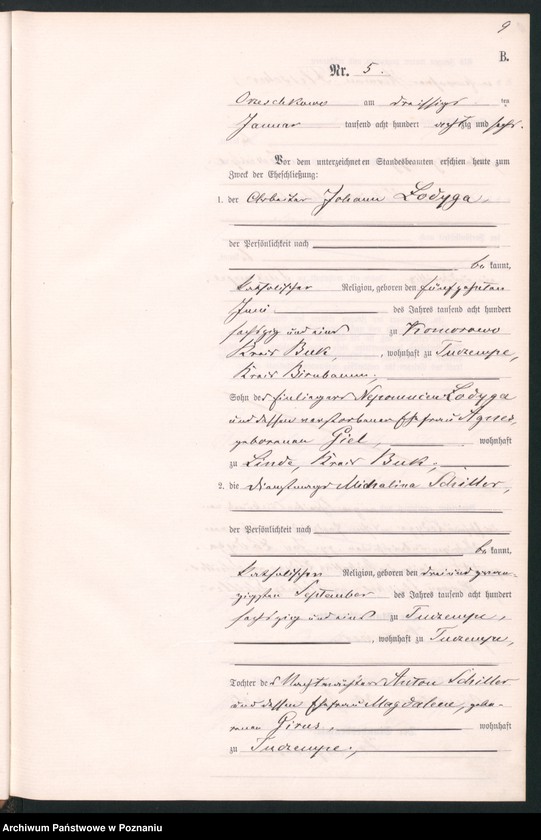 9
B.
Nr. 5.
Orzeschkowo am dreißigsten
Januar tausend acht hundert achtzig und sechs.
Vor dem unterzeichneten Standesbeamten erschien heute zum
Zweck der Eheschließung:
1. der Arbeiter Johann Lodyga
der Persönlichkeit nach
be kannt,
katholischer Religion, geboren den fünfzehnten
Juni des Jahres tausend acht hundert
sechszig und eins zu Komorowo
Kreis Buk, wohnhaft zu Tuczempe,
Kreis Birnbaum,
Sohn des Einliegers Nepomucen Lodyga
und dessen verstorbener Ehefrau Agnes,
geborenen Giel, wohnhaft
zu Linde, Kreis Buk,
2. die Dienstmagd Michalina Schiller,
der Persönlichkeit nach
be kannt,
katholischer Religion, geboren den dreiundzwan-
zigsten September des Jahres tausend acht hundert
sechszig und eins zu Tuczempe,
, wohnhaft zu Tuczempe,
Tochter des Nachtwächters Anton Schiller
und dessen Ehefrau Magdalene, gebo-
renen Girus, wohnhaft
zu Tuczempe,
Archiwum Państwowe w Poznaniu